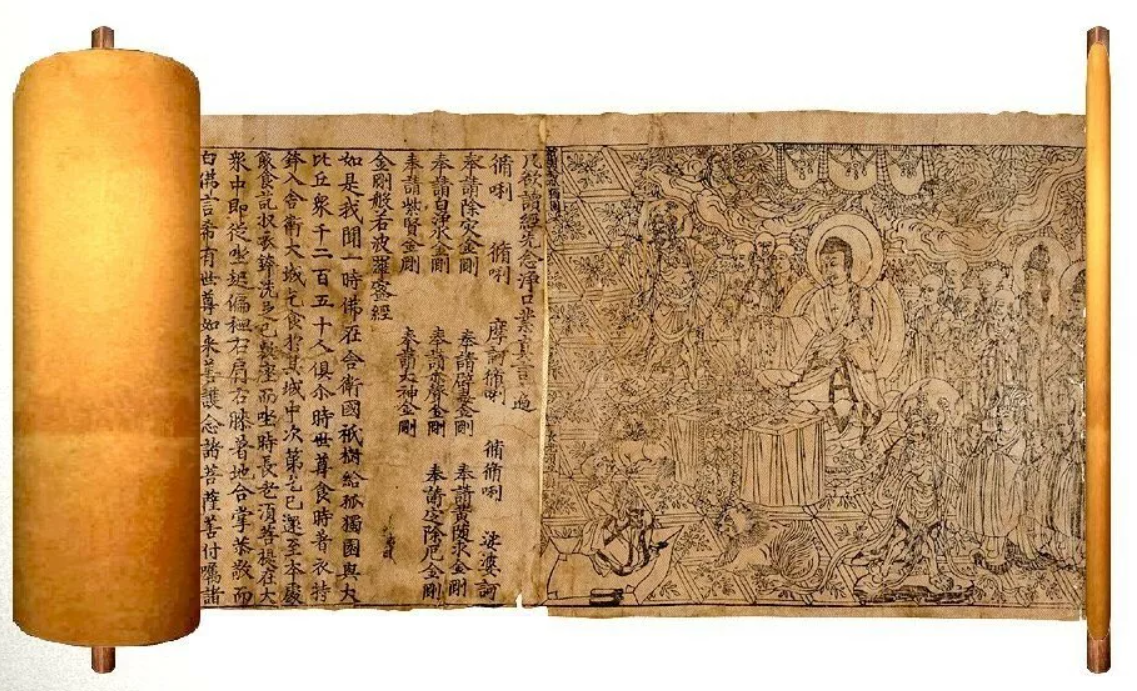 凡欲讀經先念淨口業真言遍
脩唎 脩唎 摩訶脩唎 脩脩唎 娑婆訶
奉請除灾金剛 奉請辟毒金剛 奉請黃隨求金剛
奉請白淨水金剛 奉請赤聲金剛 奉請定除厄金剛
奉請紫賢金剛 奉請大神金剛
金剛般若波羅蜜經
如是我聞一時佛在舍衛國祇樹給孤獨園與大
比丘衆千二百五十人俱尒時世尊食時著衣持
鉢入舍衛大城乞食於其城中次第乞已還至本處
飯食訖收衣鉢洗足已敷座而坐時長老須菩提在大
衆中即從坐起偏袒右肩右膝著地合掌恭敬而
白佛言希有世尊如來善護念諸菩薩善付囑諸